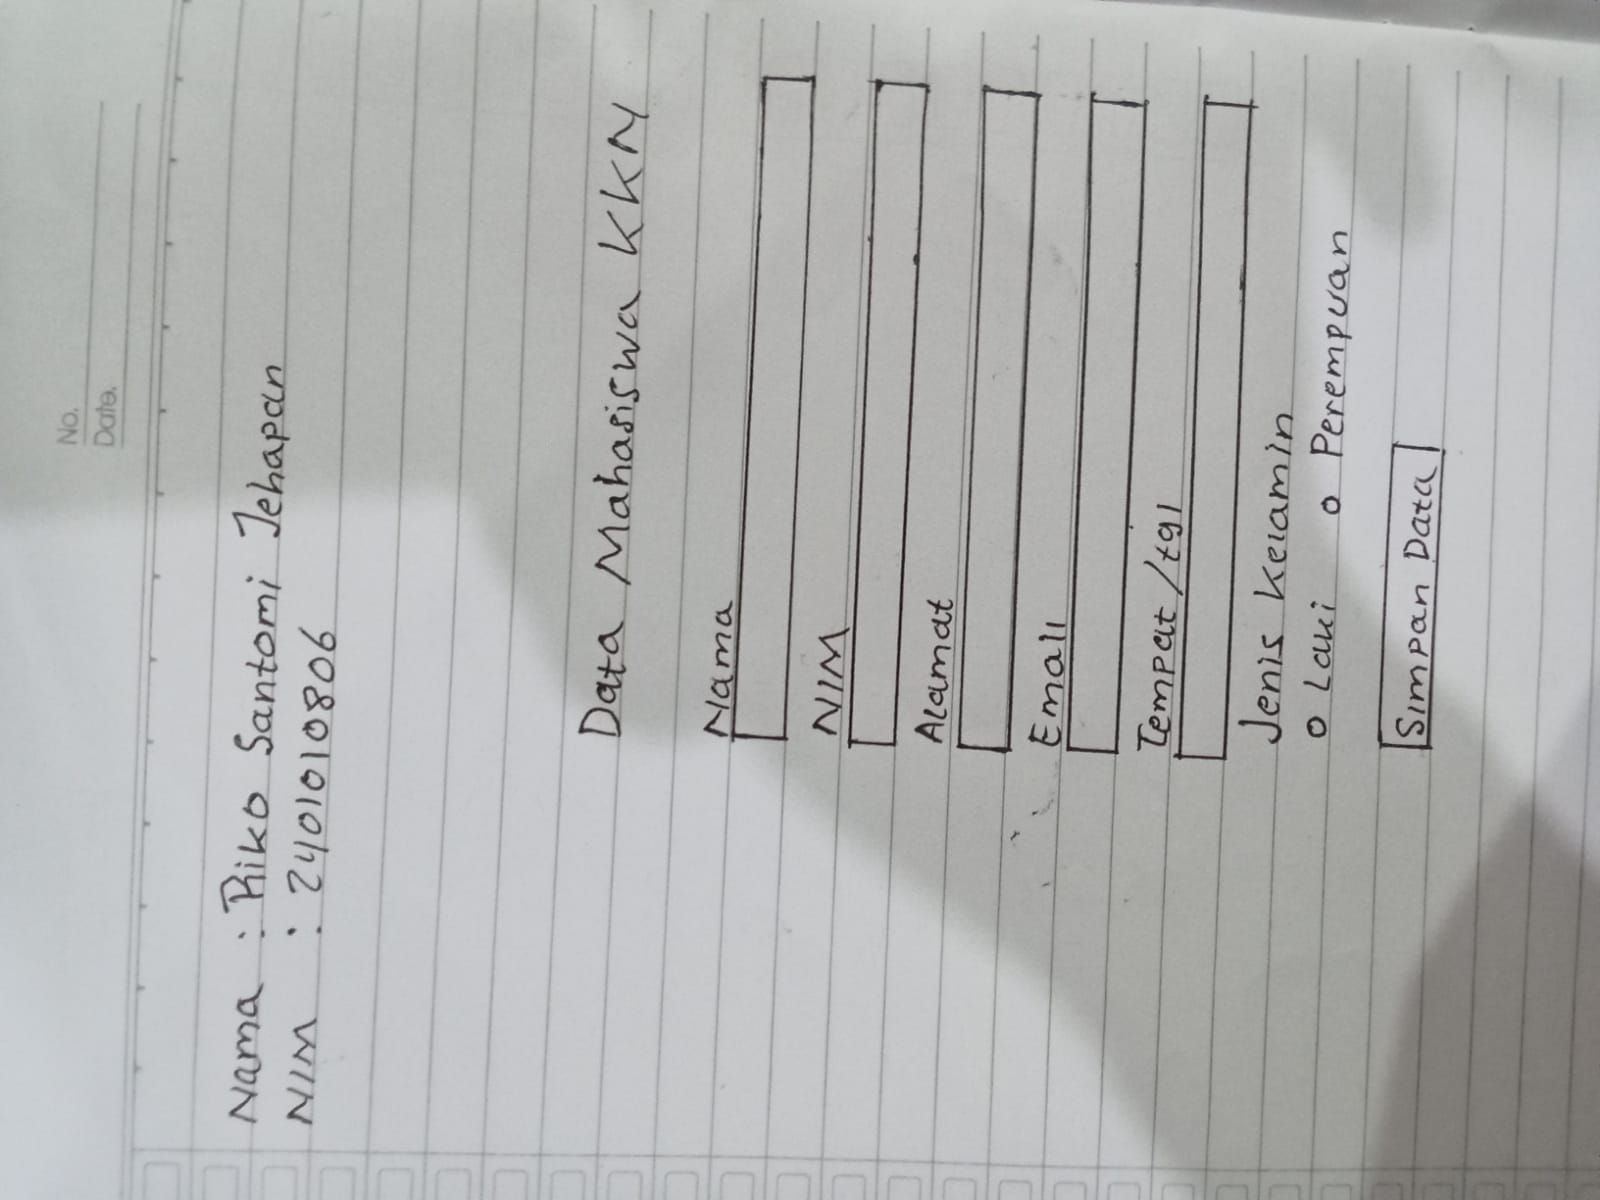 No.
Date.
Nama : Riko Santomi Jehapan
NIM : 2401010806
Data Mahasiswa KKN
Nama
NIM
Alamat
Email
Tempat/tgl
Jenis Kelamin
o Laki o Perempuan
Simpan Data